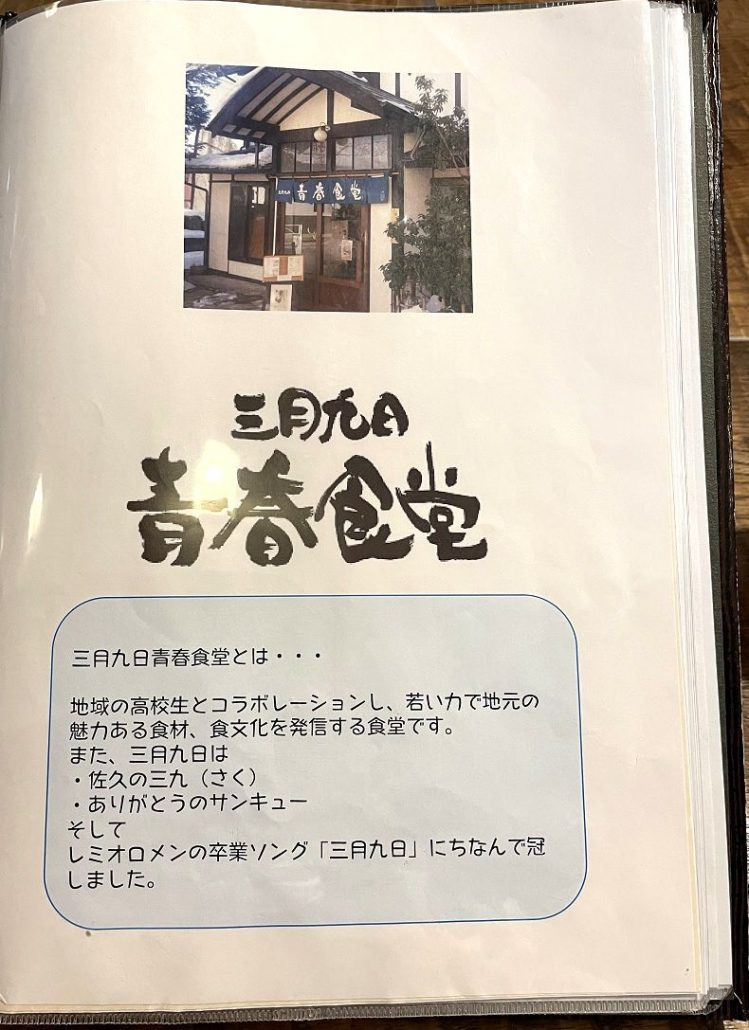 青春食堂
三月九日
青春食堂
三月九日青春食堂とは・・・
地域の高校生とコラボレーションし、若い力で地元の
魅力ある食材、食文化を発信する食堂です。
また、三月九日は
・佐久の三九（さく）
・ありがとうのサンキュー
そして
レミオロメンの卒業ソング「三月九日」にちなんで冠
しました。